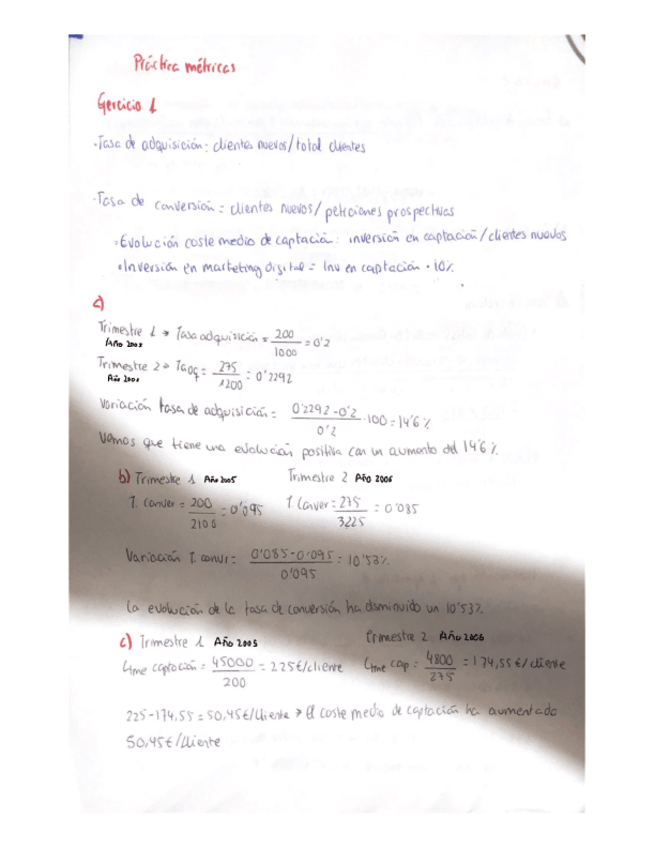 Práctica métricas
Ejercicio 1
-Tasa de adquisición: clientes nuevos/total clientes
-Tasa de conversión = clientes nuevos/peticiones prospectivas
•Evolución coste medio de captación: inversión en captación/clientes nuevos
•Inversión en marketing digital = Inv en captación · 10%
a)
Trimestre 1 → Tasa adquisición = 200/1000 = 0'2
Año 2005
Trimestre 2 → Taq = 275/1200 = 0'2292
Año 2006
Variación tasa de adquisición = 0'2292-0'2/0'2 ·100 = 14'6%
Vemos que tiene una evolución positiva con un aumento del 14'6%
b) Trimestre 1 Año 2005 Trimestre 2 Año 2006
T. Conver = 200/2100 = 0'095 T. Conver = 275/3225 = 0'085
Variación T. conv = 0'085-0'095/0'095 = 10'53%
La evolución de la tasa de conversión ha disminuido un 10'53%
c) Trimestre 1 Año 2005 trimestre 2 Año 2006
captación = 45000/200 = 225€/cliente cap = 4800/275 = 174,55€/cliente
225-174,55 = 50,45€/cliente → El coste medio de captación ha aumentado
50,45€/cliente